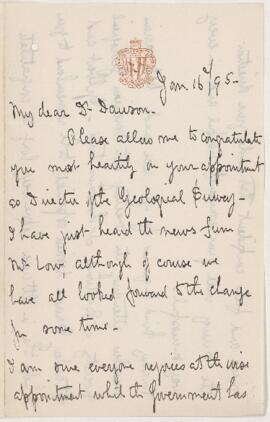 Jan 16th/95.
My dear Dr Dawson.
Please allow me to congratulate
you most heartily on your appointment
as Director of the Geological Survey -
I have just heard the news from
Mr Low, although of course we
have all looked forward to the change
for some time -
I am sure everyone rejoices at the wise
appointment which the Government has